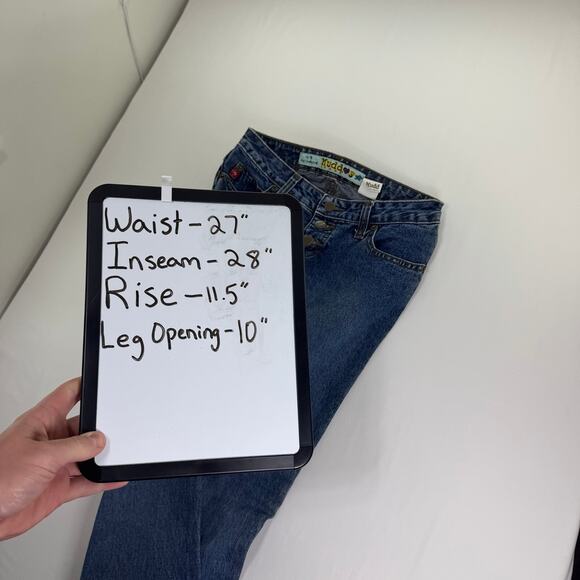 Waist - 27"
Inseam - 28"
Rise - 11.5"
Leg Opening - 10"
Mudd